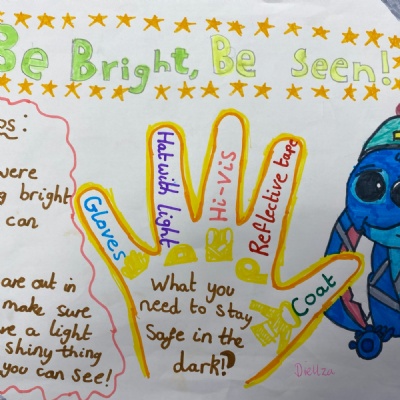 Be Bright, Be Seen!
ps:
were
g bright
can
are out in
make sure
e a light
shiny thing
you can see!
Gloves
Hat with light
Hi-Vis
Reflective tape
Coat
What you
need to stay
Safe in the
dark?
Diellza